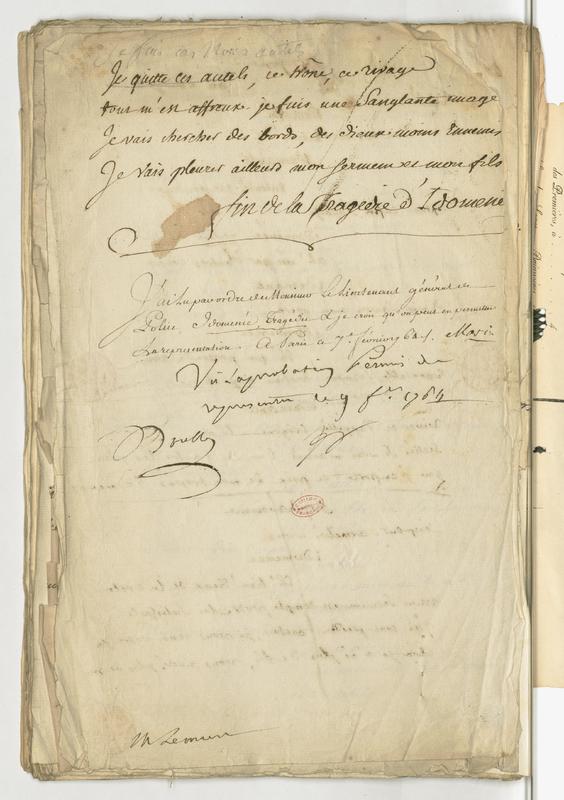 Je quitte ces autels, ce trône, ce rivage
tout m'est affreux. je fuis une Sanglante image
Je vais chercher des bords, des dieux moins Ennemis
Je Vais pleurer ailleurs mon serment et mon fils
fin de la Tragedie d'Idomenée
J'ai lu par ordre de Monsieur le Lieutenant général de
Police Idomenée Tragédie & je crois qu'on peut en permettre
la représentation. A Paris ce 7. février 1764. Marin
Vu l'approbation Permis de
representer ce 9 fer. 1764